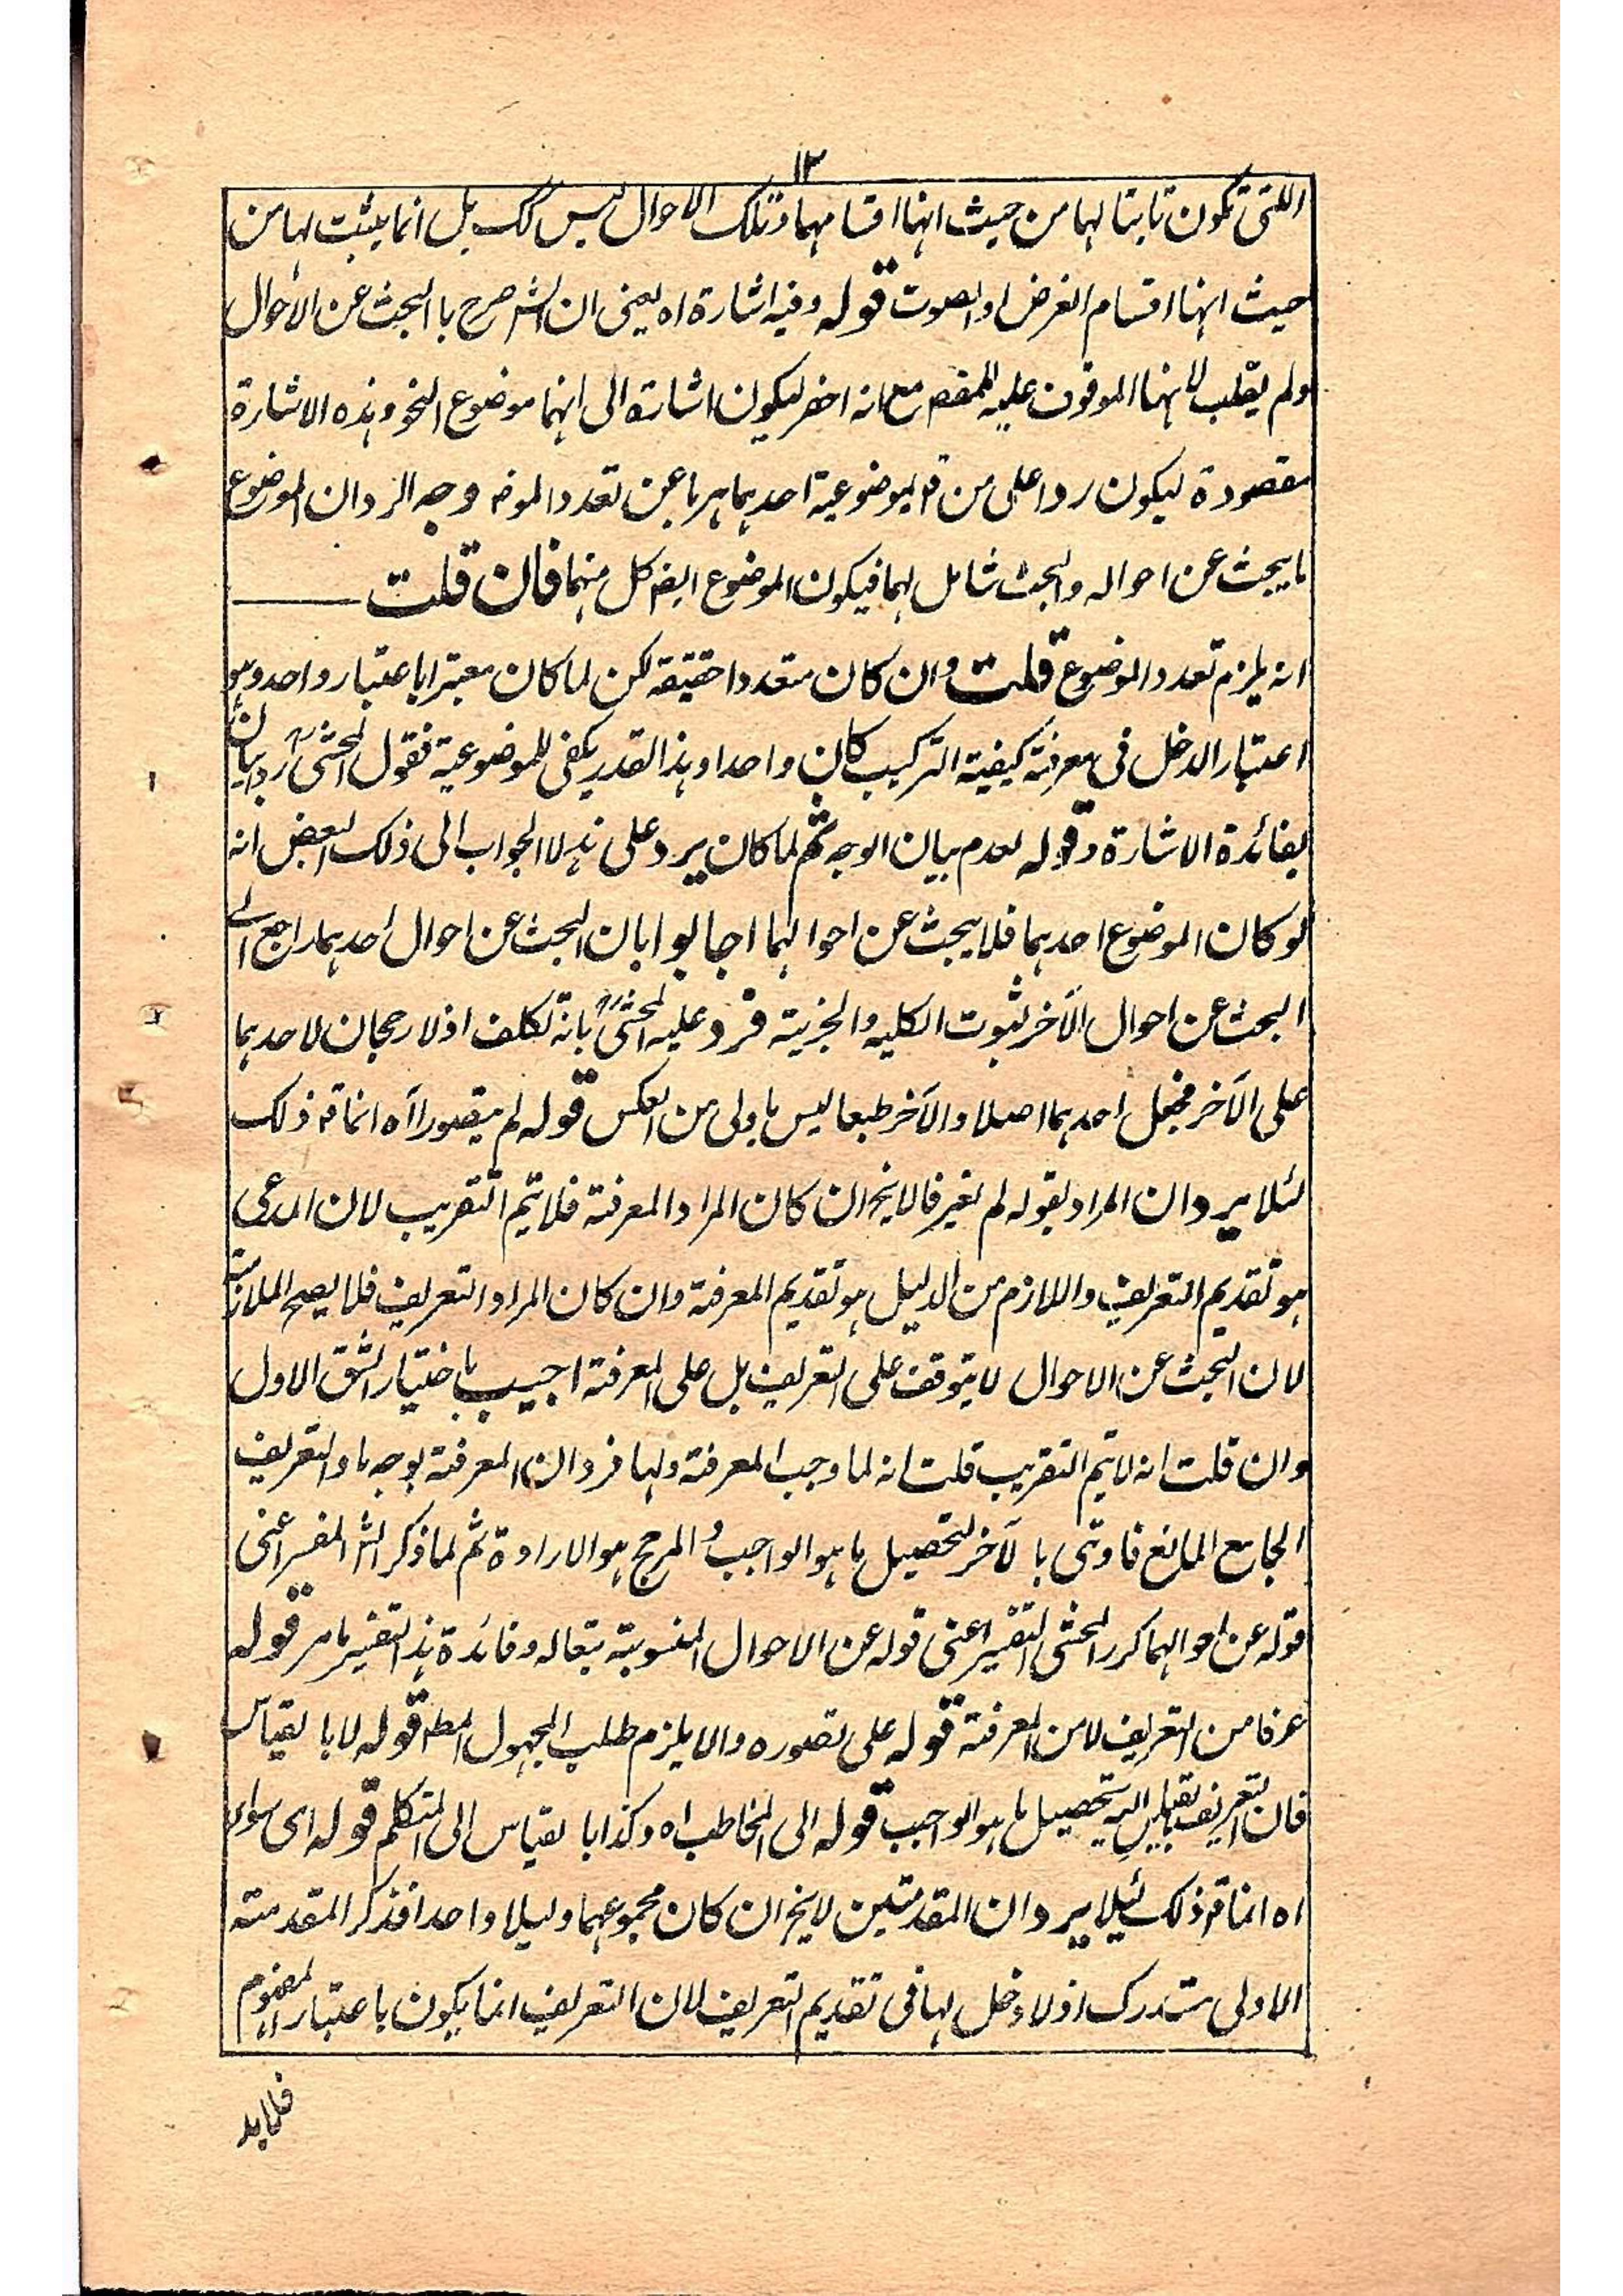 ١٣
اللتى تكون ثابتا لها من حيث انها اقسامهما وتلك الاحوال ليس كك بل انما يثبت لها من
حيث انها اقسام العرض او الصوت قوله وفيه اشارة اه يعنى ان الش صرح با البحث عن الأحوال
ولم يقلب لانها الموقوف عليه للمقصد مع انه اخصر ليكون اشارة الى انهما موضوع النحو وهذه الاشارة
مقصودة ليكون ردا على من قه بموضوعية احدهما هربا عن تعدد الموضه وجه الرد ان الموضوع
ما يبحث عن احواله والبحث شامل لهما فيكون الموضوع ايضه كل منهما فان قلت
انه يلزم تعدد الموضوع قلت وان كان متعددا حقيقة لكن لما كان معتبرا باعتبار واحد وهو
اعتبار الدخل فى معرفة كيفية التركيب كان واحدا وهذا القدر يكفى للموضوعية فقول المحشىؒ ردا بيان
لفائدة الاشارة وقوله لعدم بيان الوجه ثم لما كان يرد على هٰؤلاء الجواب الى ذلك البعض انه
لو كان الموضوع احدهما فلا يبحث عن احوالهما اجابوا بان البحث عن احوال احدهما راجع الى
البحث عن احوال الآخر لثبوت الكليه والجزئية فرد عليه المحشىؒ بانه تكلف اذ لا رجحان لاحدهما
على الآخر فجعل احدهما اصلا والآخر طبعا ليس باولى من العكس قوله لم يتصورا اٰه انما قه ذلك
لئلا يرد ان المراد بقوله لم يعرفا لا يخ ان كان المراد المعرفة فلا يتم التقريب لان المدعى
هو تقديم التعريف واللازم من الدليل هو تقديم المعرفة وان كان المراد التعريف فلا يصح الملازمة
لان البحث عن الاحوال لا يتوقف على التعريف بل على المعرفة اجيب باختيار الشق الاول
وان قلت انه لا يتم التقريب قلت انه لما وجب المعرفة ولها فردان المعرفة بوجه ما والتعريف
الجامع المانع فاوتى با لآخر لتحصيل ما هو الواجب والمرجح هو الارادة ثم لما ذكر الش المفسر اعنى
قوله عن احوالهما كرر المحشى التفسير اعنى قوله عن الاحوال المنسوبة بتعاله وفائدة هذا التفسير ما مر قوله
عرفا من التعريف لا من المعرفة قوله على تصوره والا يلزم طلب المجهول المطه قوله لا با لقياس
فان التعريف بالقياس اليه تحصيل ما هو الواجب قوله الى المخاطب اه وكذا با لقياس الى المتكلم قوله اى سواء
اه انما قه ذلك لئلا يرد ان المقدمتين لا يخ ان كان مجموعهما دليلا واحدا فذكر المقدمته
الاولى مستدرك اذ لا دخل لها فى تقديم التعريف لان التعريف انما يكون باعتبار المفهوم
فلابد